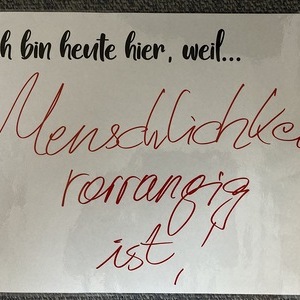 h bin heute hier, weil...
Menschlichke
vorrangig
ist!